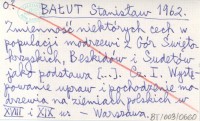 O: BAŁUT Stanisław 1962.
Zmienność niektórych cech w
populacji modrzewi z Gór Święto-
krzyskich, Beskidów i Sudetów
jako podstawa [..]. Cz. I. Wystę-
powanie upraw i pochodzenie mo-
drzewia na ziemiach polskich w
XVIII i XIX w. - Warszawa.
BT/003/0660